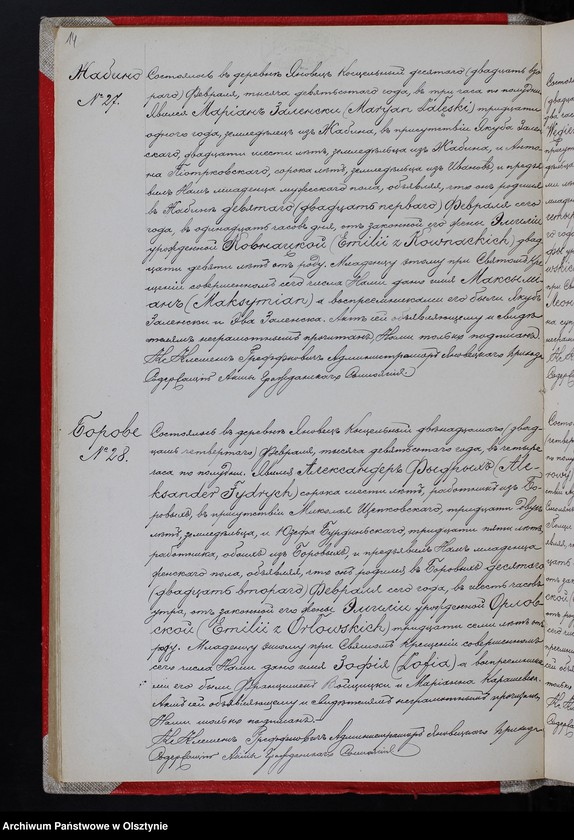 14
Жабино
№ 27.
Состоялось въ деревнѣ Яновецъ Косцельный десятого (двадцать вто-
рого) Февраля, тысяча девятьсотого года, въ три часа по полудни.
Явился Маріанъ Заленски (Maryan Załęski) тридцати
одного года, земледѣлецъ изъ Жабина, въ присутствіи Якуба Зален-
скаго, двадцати шести лѣтъ, земледѣльца изъ Жабина, и Анто-
на Піотрковскаго, сорока лѣтъ, земледѣльца изъ Ивановъ, и предъя-
вилъ Намъ младенца мужескаго пола, объявляя, что онъ родился
въ Жабинѣ девятаго (двадцать перваго) Февраля сего
года, въ одинадцать часовъ дня, отъ законной его жены Эмиліи
урожденной Ковнацкой (Emilii z Kownackich) двад-
цати девяти лѣтъ отъ роду. Младенцу этому при Святомъ Кре-
щеніи совершенномъ сего числа Нами дано имя Максымі-
анъ (Maksymian) а воспреемниками его были Якубъ
Заленски и Ева Заленска. Актъ сей объявляющему и свидѣ-
телямъ неграмотнымъ прочитанъ, Нами только подписанъ.
Кс. Клеменъ Администраторъ Яновецкаго прихода
Содержащій Акты Гражданскаго Состоянія
Борове
№ 28.
Состоялось въ деревнѣ Яновецъ Косцельный двѣнадцатаго (двад-
цать четвертаго) Февраля, тысяча девятьсотого года, въ четыре
часа по полудни. Явился Александеръ Фыдрыхъ (Ale-
ksander Fydrych) сорока шести лѣтъ, работникъ изъ Бо-
ровыхъ, въ присутствіи Миколая тридцати двухъ
лѣтъ, земледѣльца, и Юзефа тридцати пяти лѣтъ
работника, обоихъ изъ Боровыхъ, и предъявилъ Намъ младенца
женскаго пола, объявляя, что онъ родился въ Боровыхъ десятого
(двадцать второго) Февраля сего года, въ шесть часовъ
утра, отъ законной его жены Эмиліи урожденной Орлов-
ской (Emilii z Orłowskich) тридцати семи лѣтъ отъ
роду. Младенцу этому при Святомъ Крещеніи совершенномъ
сего числа Нами дано имя Зофія (Zofia) а воспреемника-
ми его были Францишекъ Войцицки и Маріанна
Актъ сей объявляющему и свидѣтелямъ неграмотнымъ прочитанъ,
Нами только подписанъ.
Кс. Клеменъ Администраторъ Яновецкаго прихода
Содержащій Акты Гражданскаго Состоянія
Archiwum Państwowe w Olsztynie